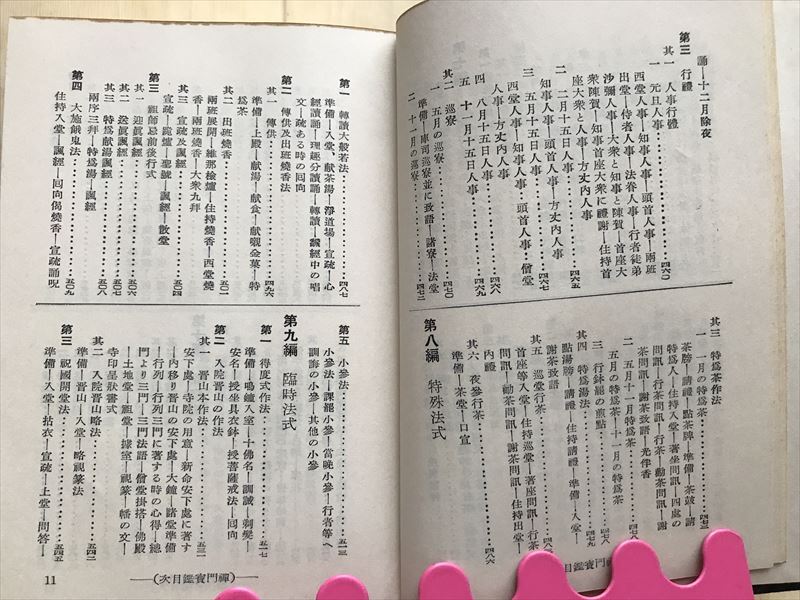 誦―十二月除夜
第三 行禮
其一 人事行禮
一 元旦人事………四六〇
西堂人事―知事人事―頭首人事―兩班
出堂―侍者人事―法眷人事―行者徒弟
沙彌人事―大衆と知事と陳賀―首座大
衆陳賀―知事首座大衆に禮謝―住持首
座大衆と人事―方丈内人事
二 二月十五日人事………四六五
知事人事―頭首人事―方丈内人事
三 五月十五日人事………四六七
西堂人事―知事人事―頭首人事―僧堂
人事―方丈内人事
四 八月十五日人事………四六八
五 十一月十五日人事………四六九
其二 巡寮
一 五月の巡寮………四七〇
準備―庫司巡寮並に致語―諸寮―法堂
二 十一月の巡寮………四七二
其三 特爲茶作法
一 一月の特爲茶………四七三
茶牓―請禮―點茶牌―準備―茶鼓―請
特爲人―住持入堂―著坐問訊―四處の
問訊―行茶問訊―行茶―勸茶問訊―謝
茶問訊―謝茶致語―光伴香
二 五月十一月特爲茶………四七八
五月の特爲茶―十一月の特爲茶
三 行鉢罷の煎點………四七九
其四 特爲湯法
點湯牓―請禮―住持請禮―準備―入堂―
謝茶致語
其五 巡堂行茶………四八二
首座等入堂―住持巡堂―著座問訊―行茶
問訊―勸茶問訊―謝茶問訊―住持出堂―
内禮
其六 夜參行茶………四八六
準備―茶堂―口宣
第八編 特殊法式
第一 轉讀大般若法………四八七
準備―入堂、獻茶湯―淨道場―宣疏―心
經讀誦―理趣分讀誦―轉讀―飜經中の唱
文―疏ある時の回向
第二 傳供及出班燒香法
其一 傳供………四九六
準備―上殿―獻湯―獻食―獻嚫金菓―特
爲茶
其二 出班燒香………五〇一
兩班展開―維那檢爐―住持燒香―西堂燒
香―兩班燒香―大衆九拜
其三 宣疏及諷經………五〇四
宣疏―跪爐―聖號―諷經―散堂
第三 祖師忌前後行式
其一 迎眞諷經………五〇六
其二 送眞諷經………五〇七
其三 特爲獻湯諷經………五〇八
兩序三拜―特爲湯―諷經
第四 大施餓鬼法………五〇九
住持入堂―諷經―回向偈燒香―宣疏誦呪
第五 小參法………五一三
小參法―課罷小參―當晚小參―行者等へ
訓誨の小參―其他の小參
第九編 臨時法式
第一 得度式作法………五一七
準備―鳴鐘入室―十佛名―訓誡―剃髮―
安名―授坐具衣鉢―授菩薩戒法―回向
第二 入院晉山の作法
其一 晉山本作法………五三一
安下處―寺院の用意―新命安下處に著す
―内移り晉山の安下處―大鐘―諸堂準備
―行列―行列三門に著する時の心得―總
門より三門―三門法語―僧堂掛搭―佛殿
―土地堂―祖堂―據室―視篆―幡の文―
寺印呈狀書式
其二 入院晉山略法………五四二
準備―晉山―入堂―略視篆法
第三 祝國開堂法………五四五
準備―入堂―拈衣―宣疏―上堂―問答―
11 ―(次目鑑寶門禪)―
次目鑑寶門禪)―